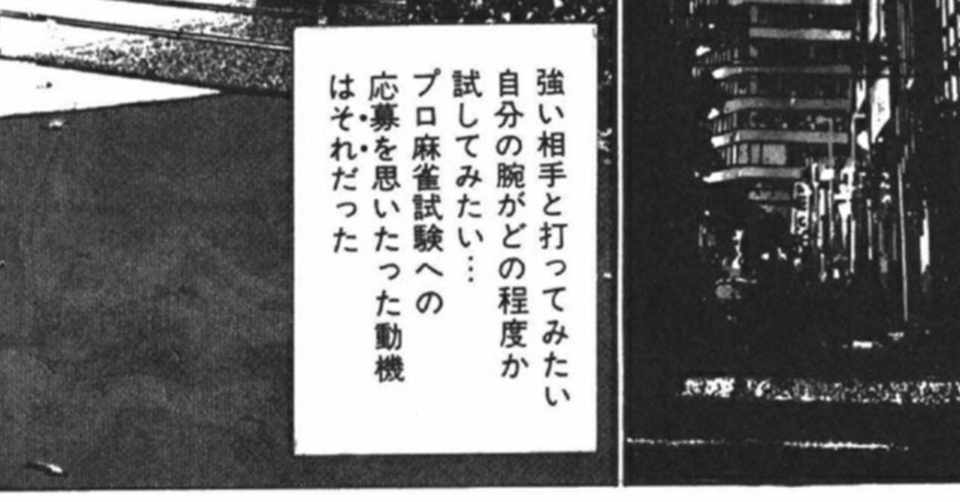 強い相手と打ってみたい
自分の腕がどの程度か
試してみたい…
プロ麻雀試験への
応募を思いたった動機
はそれだった